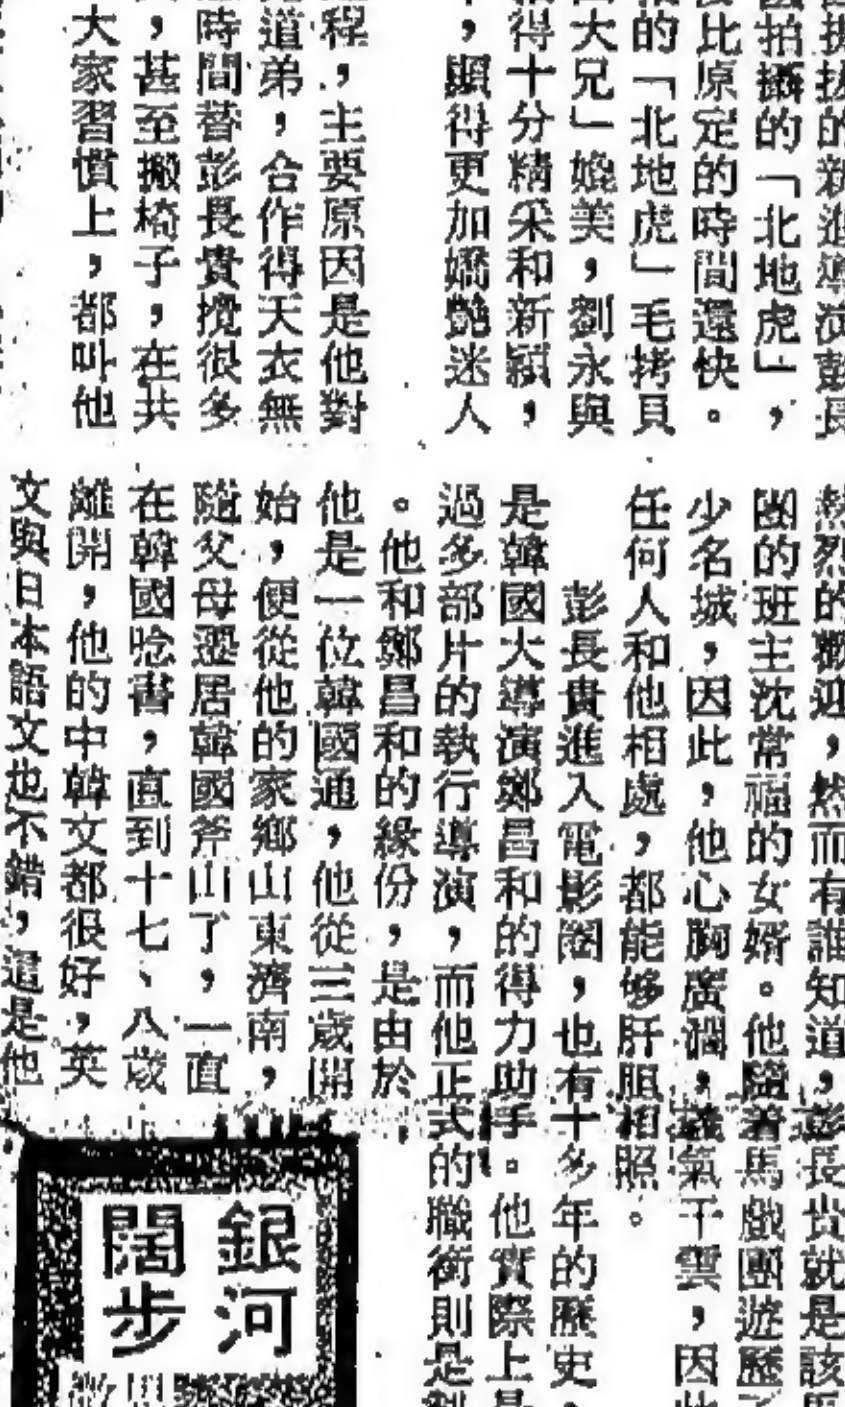 提拔的新進導演彭長
拍攝的「北地虎」，
比原定的時間還快。
的「北地虎」毛拷貝
大兄」媲美，劉永與
得十分精采和新穎，
，顯得更加嬌艷迷人
程，主要原因是他對
道弟，合作得天衣無
時間替彭長貴攪很多
，甚至搬椅子，在共
大家習慣上，都叫他
熱烈的歡迎，然而有誰知道，彭長貴就是該馬
團的班主沈常福的女婿。他隨着馬戲團遊歷了
少名城，因此，他心胸廣濶，義氣干雲，因此
任何人和他相處，都能够肝胆相照。
彭長貴進入電影圈，也有十多年的歷史，
是韓國大導演鄭昌和的得力助手。他實際上是
過多部片的執行導演，而他正式的職銜則是副
。他和鄭昌和的緣份，是由於
他是一位韓國通，他從三歲開
始，便從他的家鄉山東濟南，
隨父母遷居韓國斧山了，一直
在韓國唸書，直到十七、八歲
離開，他的中韓文都很好，英
文與日本語文也不錯，這是他
銀河
闊步